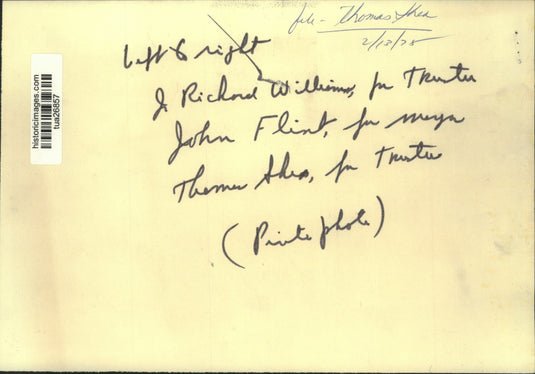 file - Thomas Shea
2/13/75
left to right
J. Richard Williams, for Trustee
John Flint, for mayor
Thomas Shea, for Trustee
(Private photo)
historicimages.com
tua26857